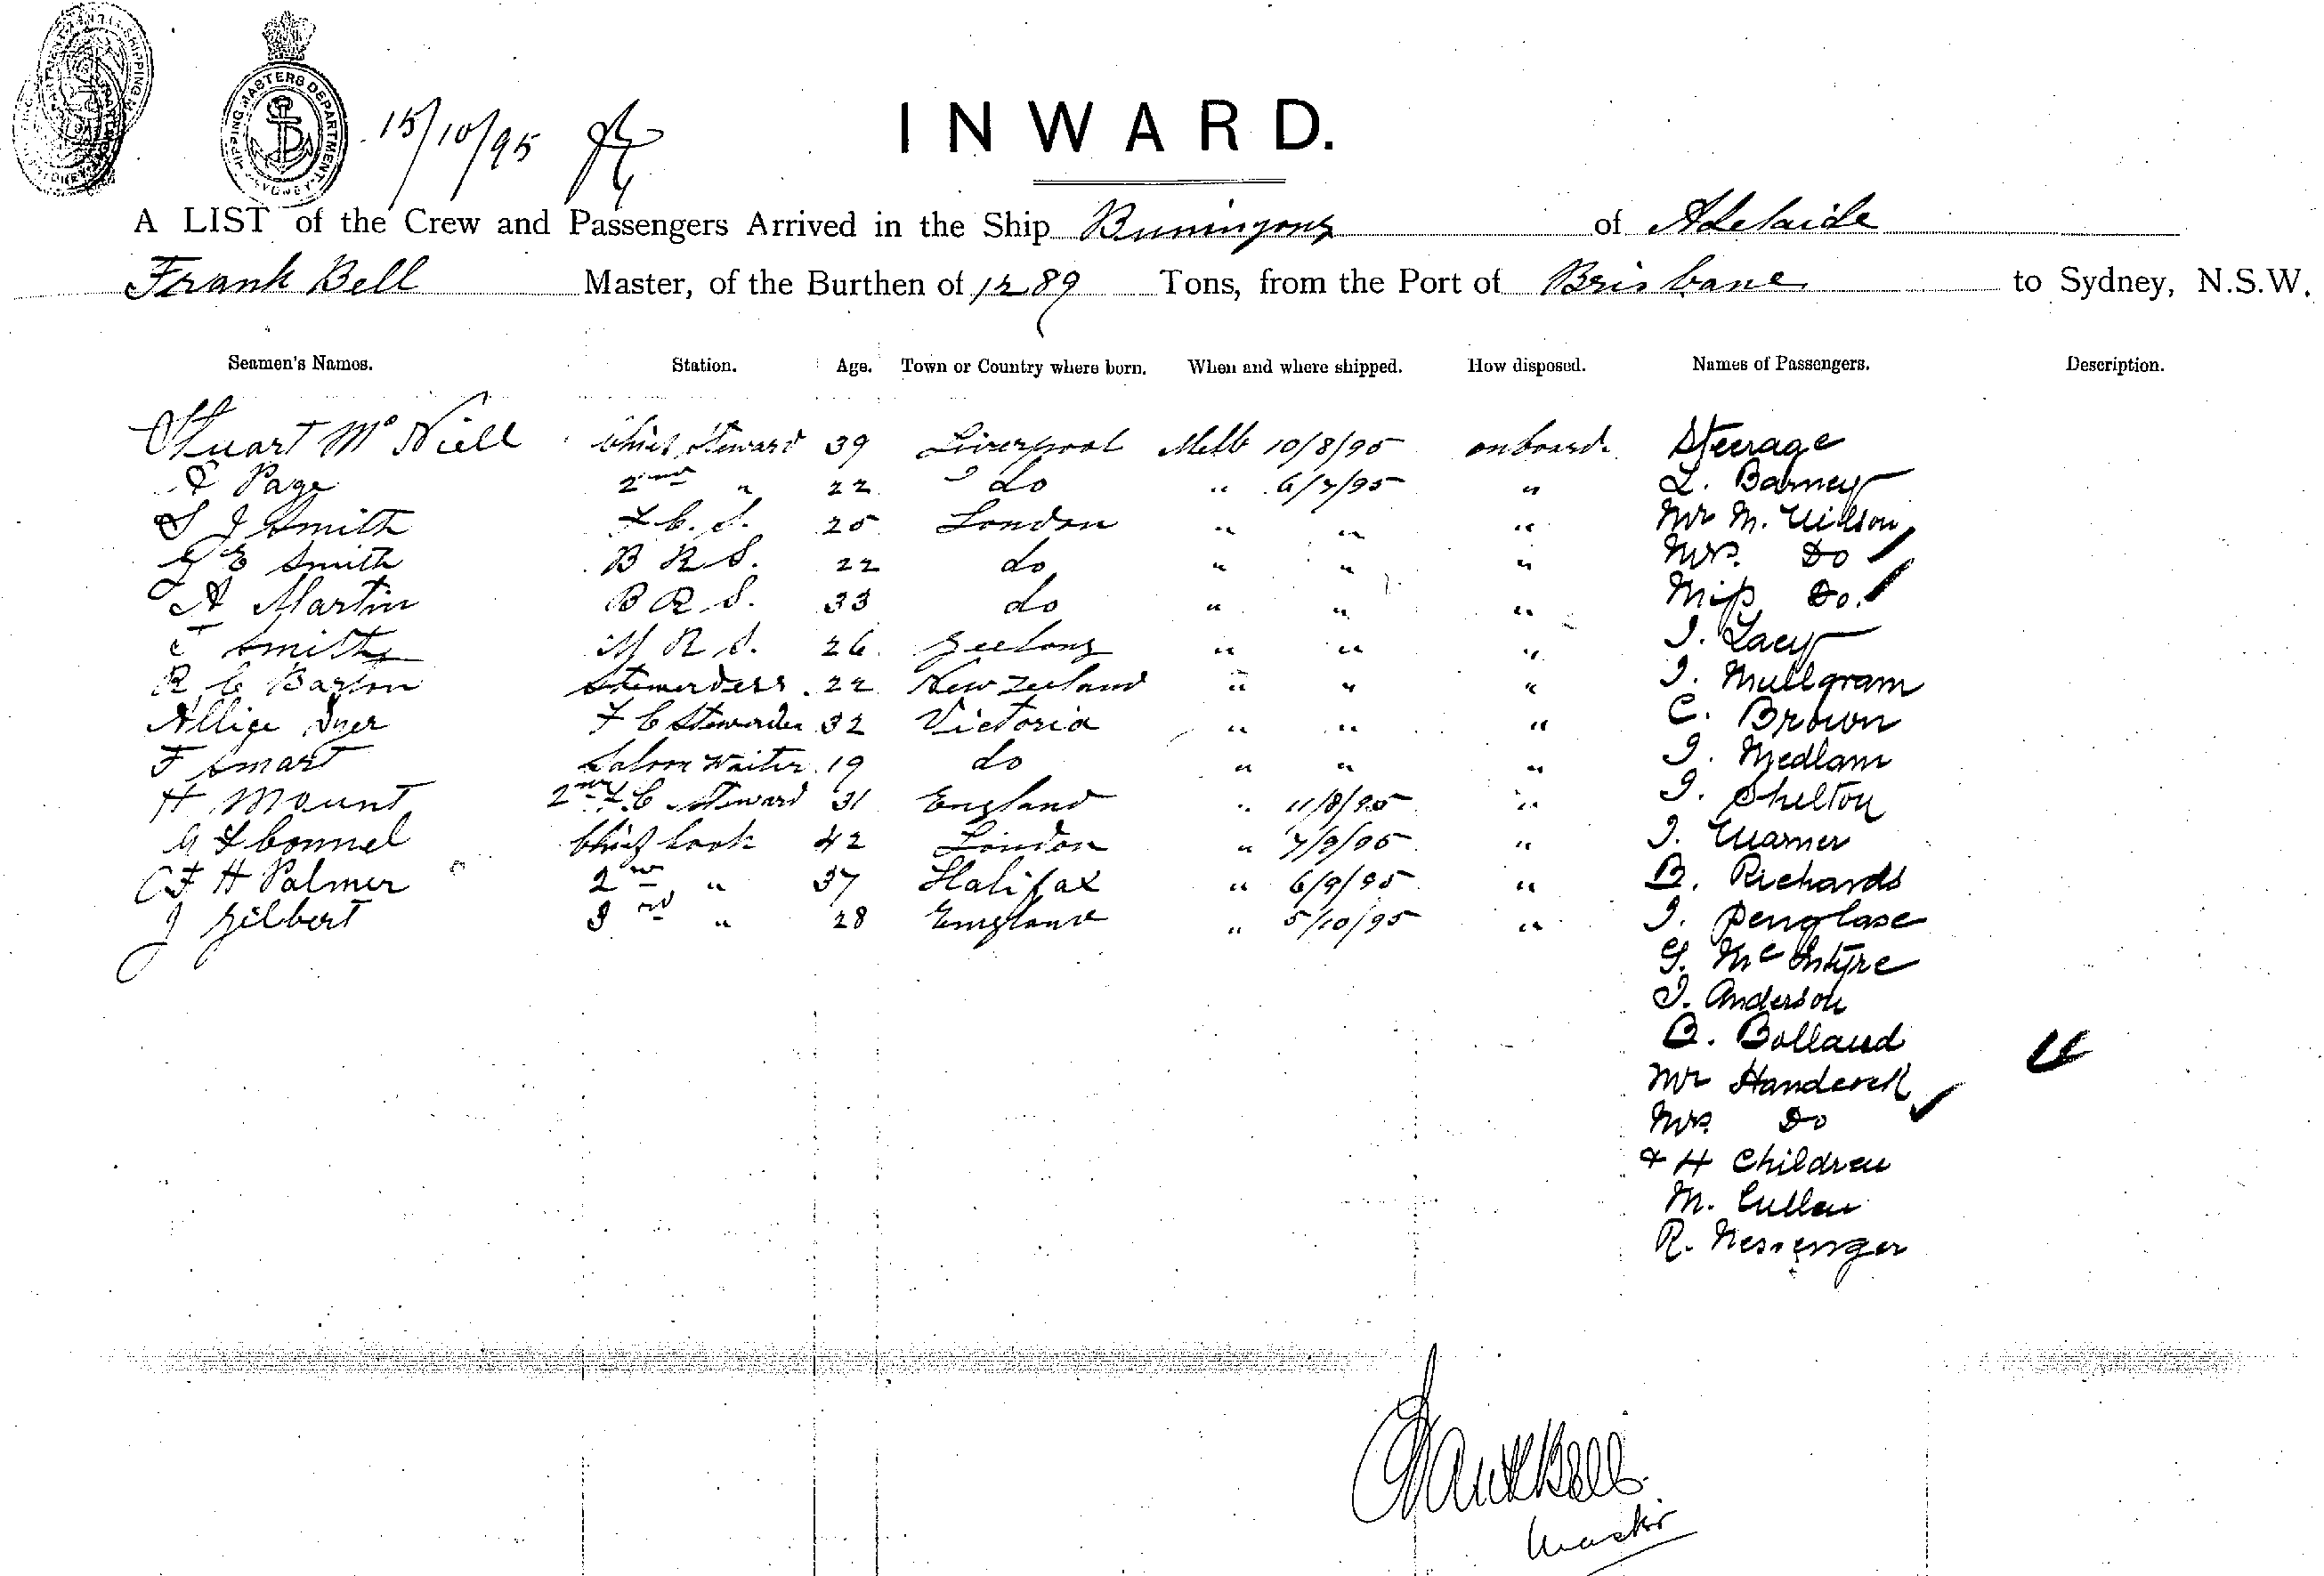 SHIPPING MASTERS DEPARTMENT SYDNEY
15/10/95
INWARD.
A LIST of the Crew and Passengers Arrived in the Ship Buninyong of Adelaide
Frank Bell Master, of the Burthen of 1289 Tons, from the Port of Brisbane to Sydney, N.S.W.
Seamen's Names. Station. Age. Town or Country where born. When and where shipped. How disposed. Names of Passengers. Description.
Stuart McNiell Chief Steward 39 Liverpool Melb 10/8/95 on board. Steerage
Page 2nd " 22 do " 6/7/95 " L. Barney
S J Smith F.C.S. 25 London " " " Mr M. Wilson
G E Smith B R S. 22 do " " " Mrs. Do
A Martin B R S. 33 do " " " Miss Do.
Smith M R S. 26 Geelong " " " J. Lacy
R C Barton Stewardess. 22 New Zeeland " " " J. Mullgram
Allice Dyer F C Stewardess 32 Victoria " " " C. Brown
F Smart Saloon Waiter 19 do " " " J. Medlam
H Mount 2nd F.C Steward 31 England " 11/8/95 " J. Shelton
G F Connel Chief Cook 42 London " 7/9/95 " J. Warner
C F H Palmer 2nd " 37 Halifax " 6/9/95 " B. Richards
J Gilbert 3rd " 28 England " 5/10/95 " J. Penglase
G. McIntyre
J. Anderson
B. Bolland
Mr Handerell
Mrs. Do
& 4 Children
M. Cullen
R. Messenger
Frank Bell
Master